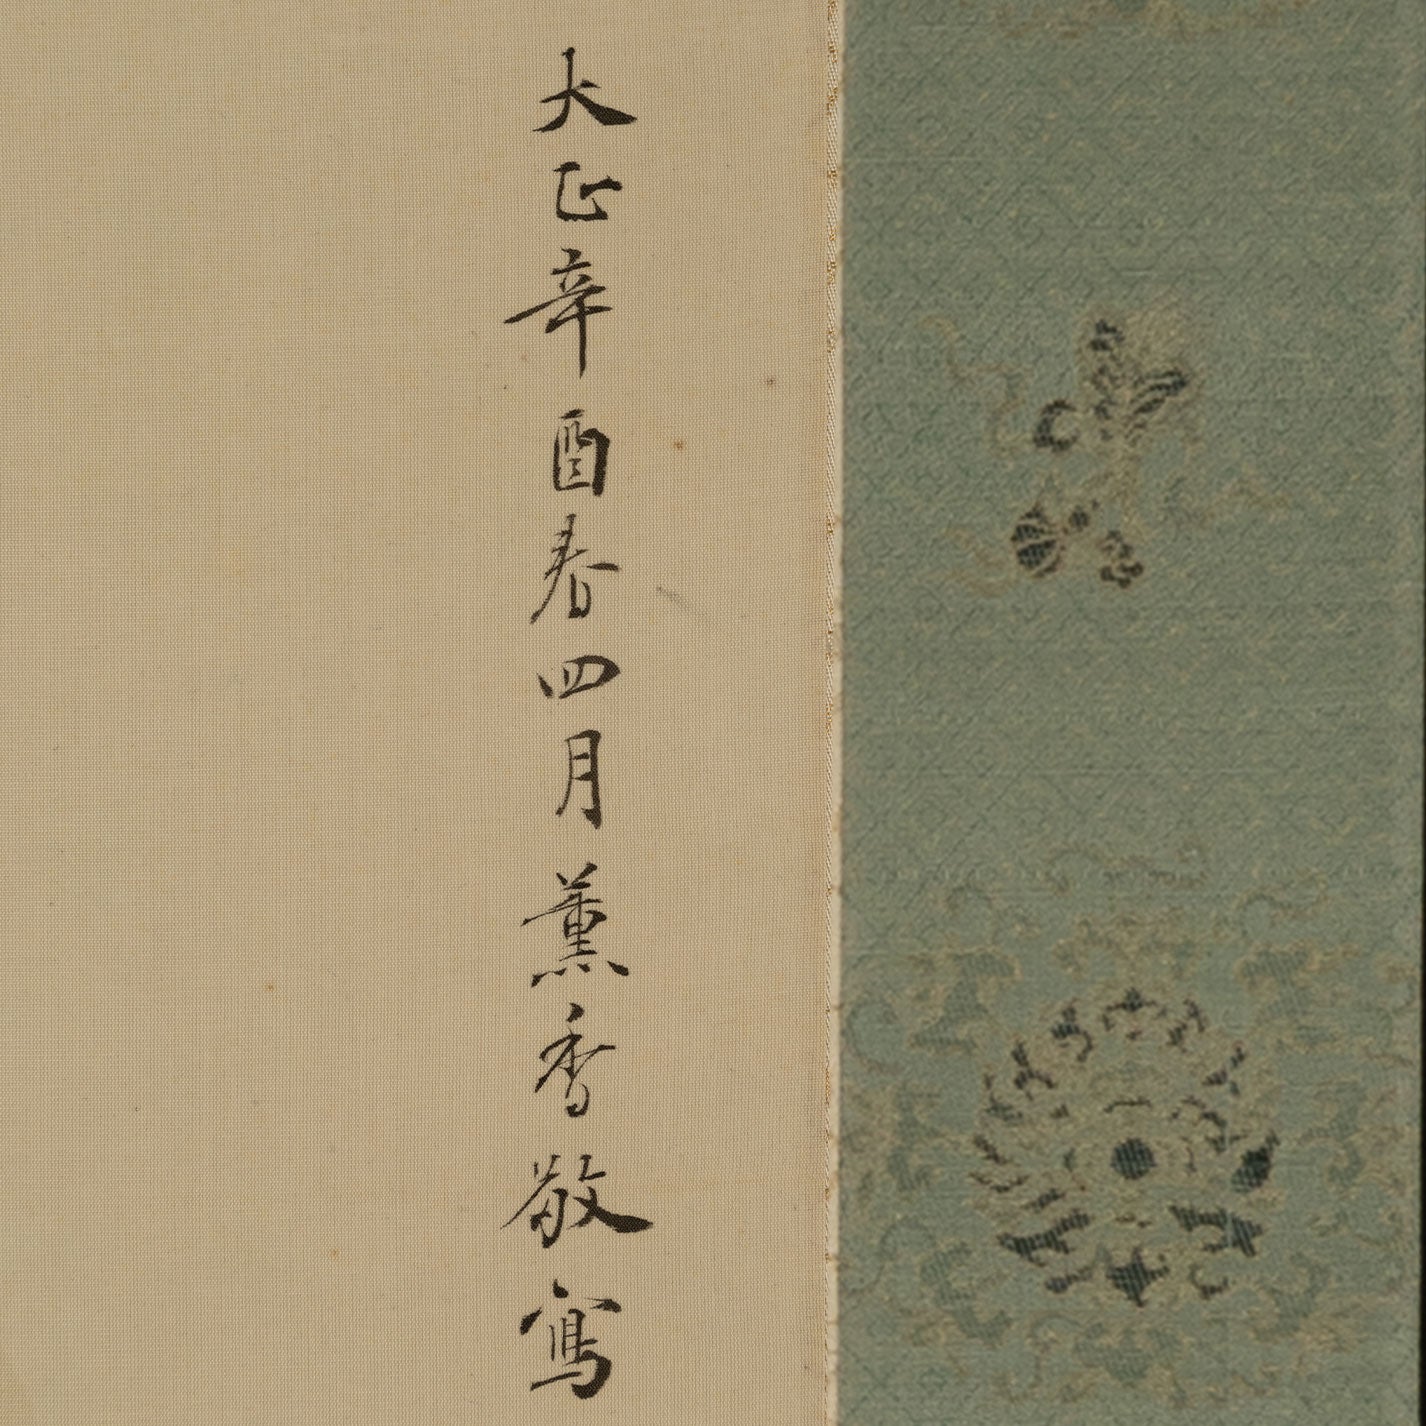 大正辛酉春四月薫香敬寫